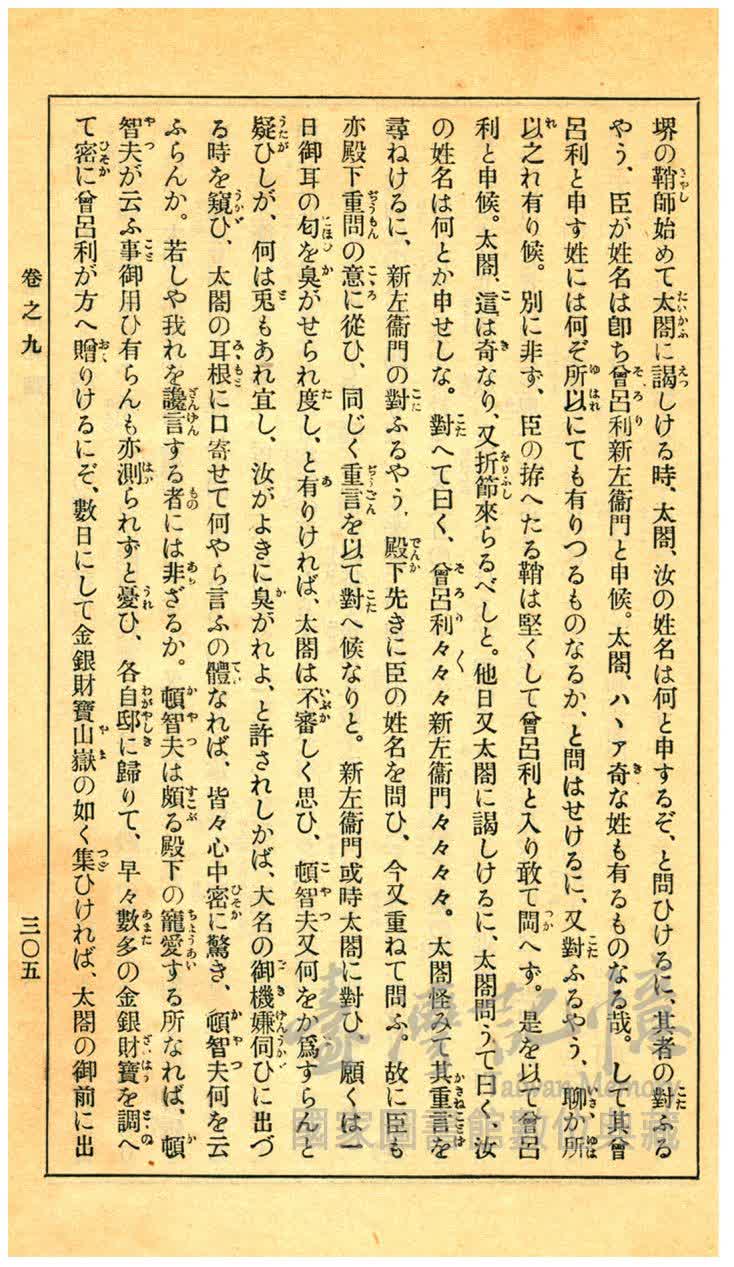 堺の鞘師始めて太閤に謁しける時、太閤、汝の姓名は何と申するぞ、と問ひけるに、其者の對ふる
やう、臣が姓名は卽ち曾呂利新左衞門と申候。太閤、ハヽァ奇な姓も有るものなる哉。して其曾
呂利と申す姓には何ぞ所以にても有りつるものなるか、と問はせけるに、又對ふるやう、聊か所
以之れ有り候。別に非ず、臣の拵へたる鞘は堅くして曾呂利と入り敢て閊へず。是を以て曾呂
利と申候。太閤、這は奇なり、又折節來らるべしと。他日又太閤に謁しけるに、太閤問うて曰く、汝
の姓名は何とか申せしな。對へて曰く、曾呂利々々々新左衞門々々々々。太閤怪みて其重言を
尋ねけるに、新左衞門の對ふるやう、殿下先きに臣の姓名を問ひ、今又重ねて問ふ。故に臣も
亦殿下重問の意に從ひ、同じく重言を以て對へ候なりと。新左衞門或時太閤に對ひ、願くは一
日御耳の匂を臭がせられ度し、と有りければ、太閤は不審しく思ひ、頓智夫又何をか爲すらんと
疑ひしが、何は兎もあれ宜し、汝がよきに臭がれよ、と許されしかば、大名の御機嫌伺ひに出づ
る時を窺ひ、太閤の耳根に口寄せて何やら言ふの體なれば、皆々心中密に驚き、頓智夫何を云
ふらんか。若しや我れを讒言する者には非ざるか。頓智夫は頗る殿下の寵愛する所なれば、頓
智夫が云ふ事御用ひ有らんも亦測られずと憂ひ、各自邸に歸りて、早々數多の金銀財寶を調へ
て密に曾呂利が方へ贈りけるにぞ、數日にして金銀財寶山嶽の如く集ひければ、太閤の御前に出
卷之九
三〇五
臺灣記憶
Taiwan Memory
國家圖書館數位典藏